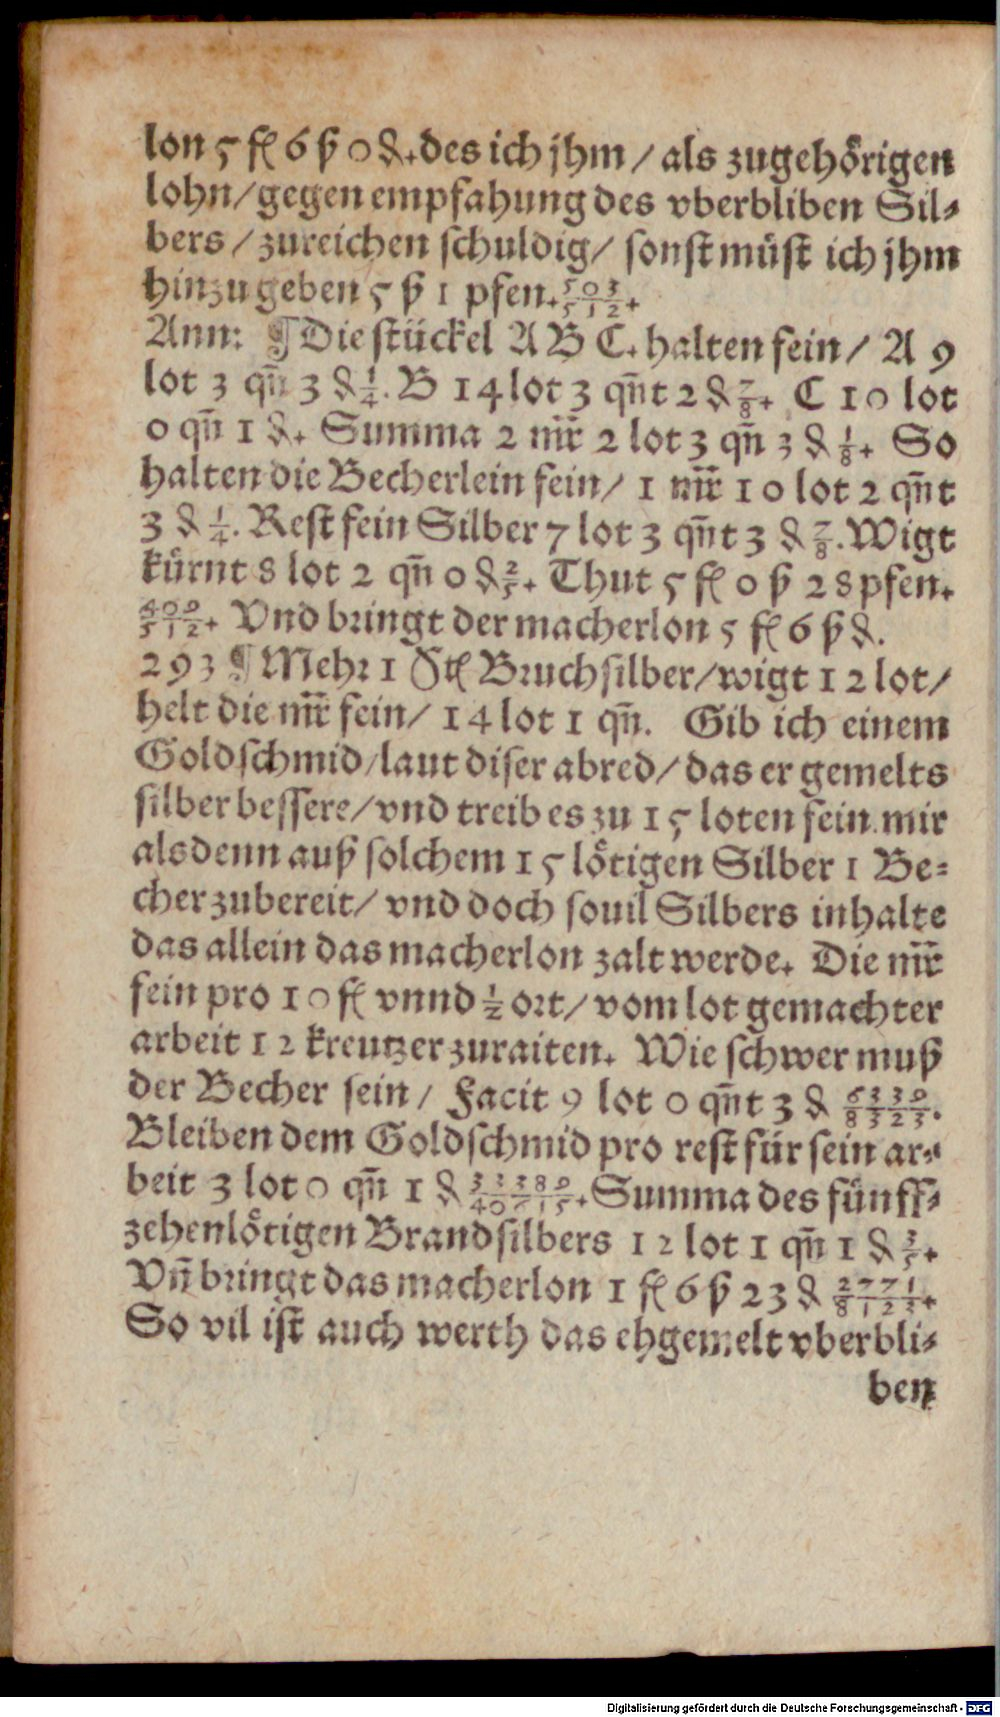 lon 5 fl 6 ß 0 ₰. des ich jhm / als zugehörigen
lohn / gegen empfahung des vberbliben Sil⸗
bers / zureichen schuldig / sonst müst ich jhm
hinzu geben 5 ß 1 pfen. 503/512.
Ann: ¶ Die stückel A B C. halten fein / A 9
lot 3 qñ 3 ₰ 1/4. B 14 lot 3 qñt 2 ₰ 7/8. C 10 lot
0 qñ 1 ₰. Summa 2 mr̃ 2 lot 3 qñ 3 ₰ 1/8. So
halten die Becherlein fein / 1 mr̃ 10 lot 2 qñt
3 ₰ 1/4. Rest fein Silber 7 lot 3 qñt 3 ₰ 7/8. Wigt
kürnt 8 lot 2 qñ 0 ₰ 2/5. Thut 5 fl 0 ß 28 pfen.
409/512. Vnd bringt der macherlon 5 fl 6 ß ₰.
293 ¶ Mehr 1 Stl Bruchsilber / wigt 12 lot /
helt die mr̃ fein / 14 lot 1 qñ. Gib ich einem
Goldschmid / laut diser abred / das er gemelts
silber bessere / vnd treib es zu 15 loten fein mir
alsdenn auß solchem 15 lötigen Silber 1 Be⸗
cher zubereit / vnd doch souil Silbers inhalte
das allein das macherlon zalt werde. Die mr̃
fein pro 10 fl vnnd 1/2 ort / vom lot gemachter
arbeit 12 kreutzer zuraiten. Wie schwer muß
der Becher sein / Facit 9 lot 0 qñt 3 ₰ 6339/8323.
Bleiben dem Goldschmid pro rest für sein ar⸗
beit 3 lot 0 qñ 1 ₰ Summa des fünff⸗
zehenlötigen Brandsilbers 12 lot 1 qñ 1 ₰ 3/5.
Vñ bringt das macherlon 1 fl 6 ß 23 ₰ 2771/8123.
So vil ist auch werth das ehgemelt vberbli⸗
ben
Digitalisierung gefördert durch die Deutsche Forschungsgemeinschaft - DFG